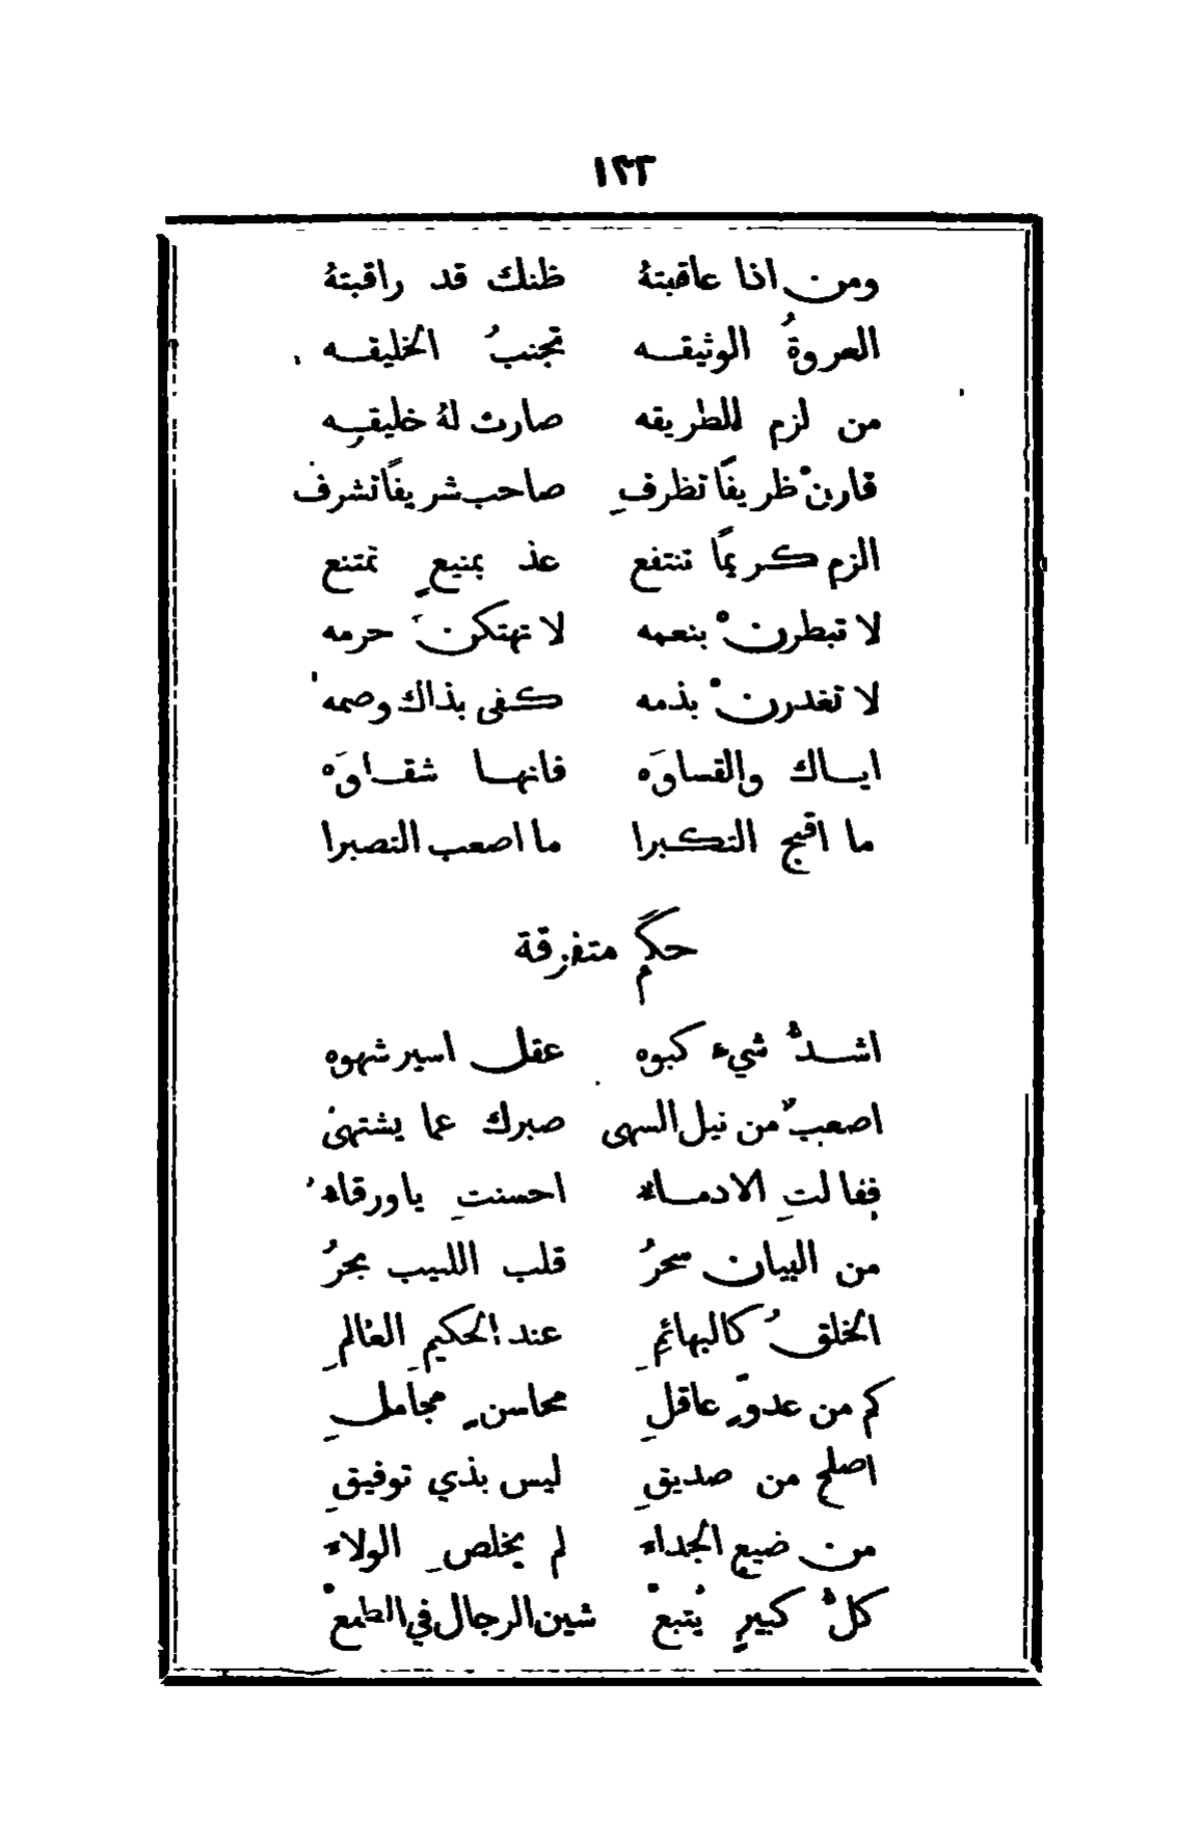 ١٣٣
ومن اذا عاقبتهُ ظنك قد راقبتهُ
العروةُ الوثيقه تجنبُ الخليقه
من لزم الطريقه صارت لهُ خليقه
قارنْ ظريفًا تظرفِ صاحب شريفًا تشرف
الزم كريمًا تنتفع عذ بمنيعٍ تمتنع
لا تبطرنْ بنعمه لا تهتكن حرمه
لا تغدرنْ بذمه كفى بذاك وصمه
اياك والقساوَه فانها شقاوَه
ما اقبح التكبرا ما اصعب التصبرا
حكمٌ متفرقة
اشدُّ شيء كبوه عقل اسير شهوه
اصعبُ من نيل السهى صبرك عما يشتهى
فقالتِ الادماء احسنتِ ياورقاء
من البيان سحرُ قلب اللبيب بحرُ
الخلقُ كالبهائمِ عند الحكيمِ العالمِ
كم من عدوٍّ عاقلِ محاسنٍ مجاملِ
اصلح من صديقِ ليس بذي توفيقِ
من ضيع الجداء لم يخلصِ الولاء
كلُّ كبيرٍ يُتبعْ شين الرجال في الطمعْ